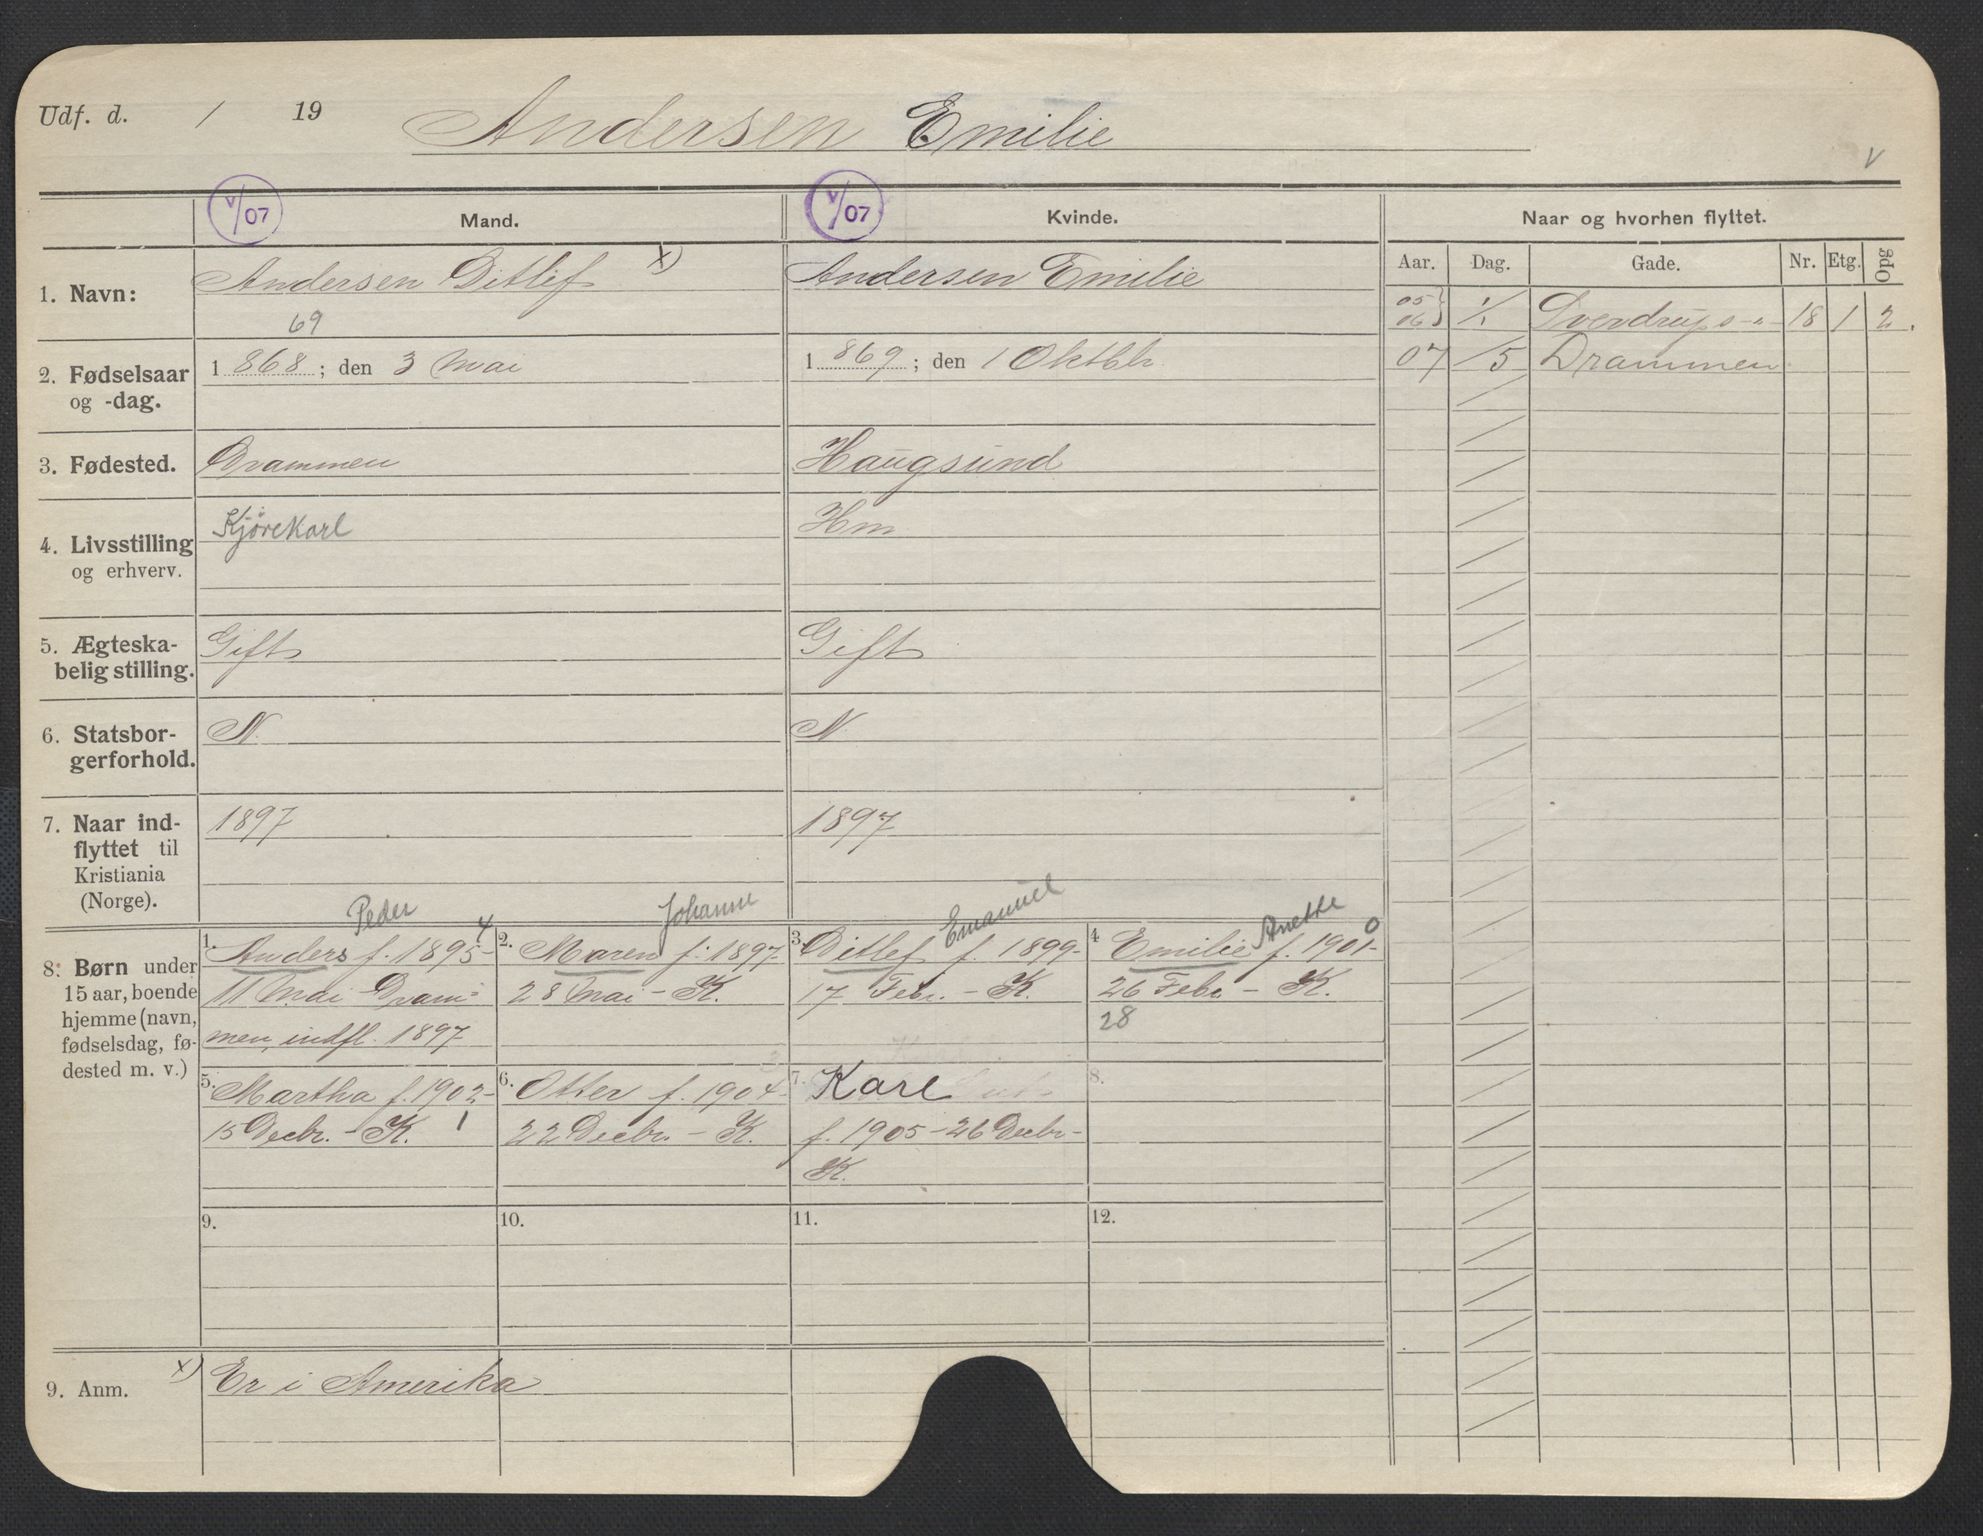 Udf. d. / 19 Andersen Emilie
V
V/07 Mand. V/07 Kvinde. Naar og hvorhen flyttet.
Aar. Dag. Gade. Nr. Etg. Opg
1. Navn: Andersen Ditlef x) Andersen Emilie
05 } 1/1 Sverdrups-" 18 1 2.
06
69
2. Fødselsaar 1 868; den 3 Mai 1 869; den 1 Oktbr.
07 /5 Drammen
og -dag.
3. Fødested. Drammen Haugsund
4. Livsstilling Kjørekarl Hm
og erhverv.
5. Ægteska- Gift Gift
belig stilling.
6. Statsbor- N. N.
gerforhold.
7. Naar ind- 1897 1897
flyttet til
Kristiania
(Norge).
Peder Johanne Emanuel Anette
8. Børn under
15 aar, boende
hjemme (navn,
fødselsdag, fø-
dested m. v.)
1. Anders f. 1895- 4
11 Mai Dram-
men, indfl. 1897
2. Maren f. 1897-
28 Mai - K.
3. Ditlef f. 1899-
17 Febr. - K.
4 Emilie f. 1901- 0
26 Febr. - K.
28
5. Martha f. 1902-
15 Decbr. - K. 1
6. Otter f. 1904-
22 Decbr. - K.
7. Karl
f. 1905-26 Decbr-
K.
8.
9. 10. 11. 12.
9. Anm. x) Er i Amerika